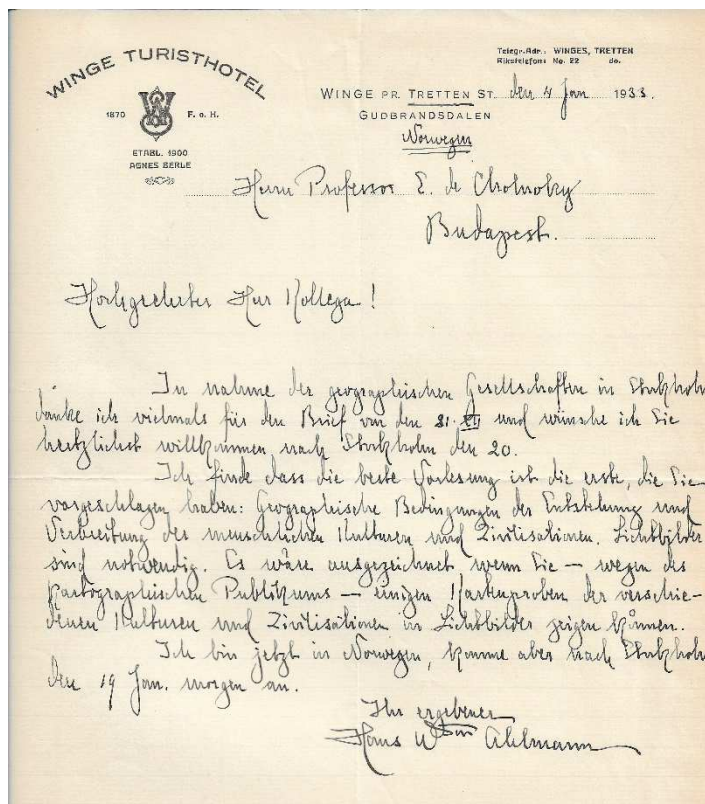 WINGE TURISTHOTEL
1870 F. o. H.
ETABL. 1900
AGNES BERLE
Telegr.-Adr.: WINGES, TRETTEN
Rikstelefon: No. 22 do.
WINGE PR. TRETTEN ST. den 4 Jan. 1933.
GUDBRANDSDALEN
Norwegen
Herrn Professor E. de Cholnoky
Budapest.
Hochgeehrter Herr Kollega!
In nahme der geographischen Gesellschaften in Stockholm
danke ich vielmals für den Brief von den 21. XII und wünsche ich Sie
herzlichst willkommen nach Stockholm den 20.
Ich finde dass die beste Vorlesung ist die erste, die Sie
vorgeschlagen haben: Geographische Bedingungen der Entstehung und
Verbreitung der menschlichen Kulturen und Zivilisationen. Lichtbilder
sind notwendig. Es wäre ausgezeichnet wenn Sie — wegen des
kartographischen Publikums — einigen Kartenproben der verschie-
denen Kulturen und Zivilisationen in Lichtbilder zeigen können.
Ich bin jetzt in Norwegen, komme aber nach Stockholm
den 19 Jan. morgen an.
Ihr ergebener
Hans W:son Ahlmann